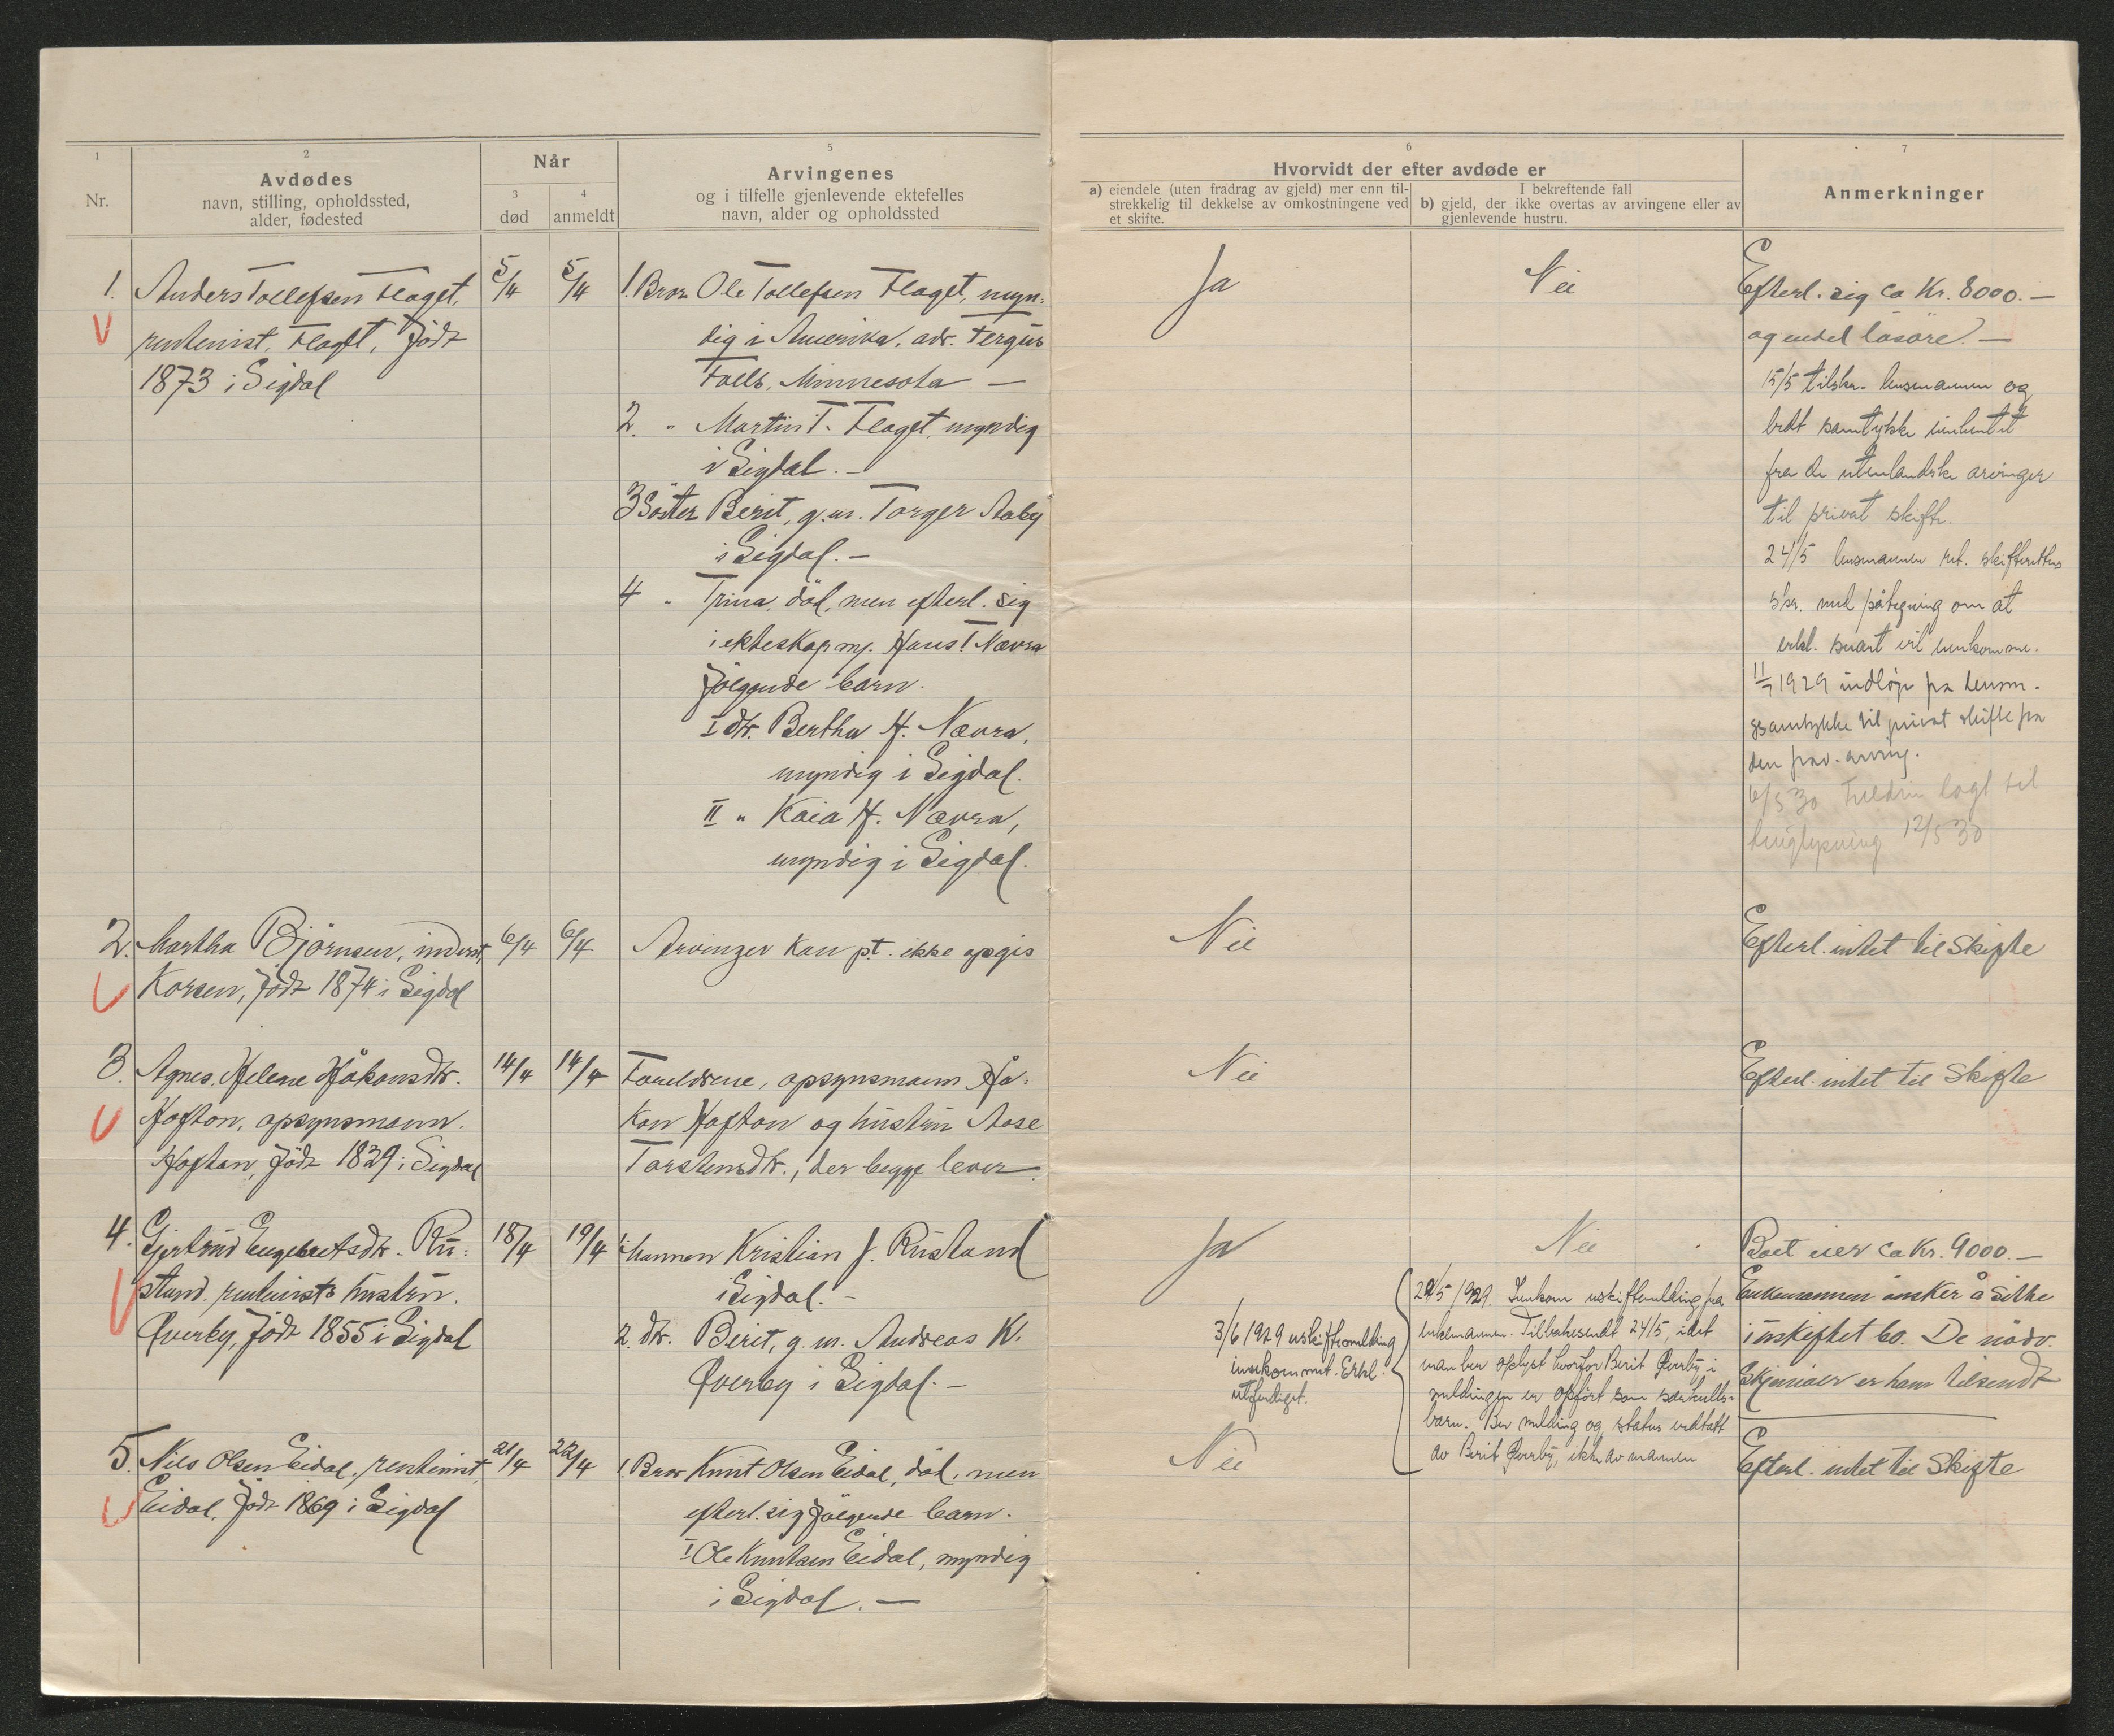 1
Nr.
2
Avdødes
navn, stilling, opholdssted,
alder, fødested
Når
3
død
4
anmeldt
5
Arvingenes
og i tilfelle gjenlevende ektefelles
navn, alder og opholdssted
6
Hvorvidt der efter avdøde er
a) eiendele (uten fradrag av gjeld) mer enn til-
strekkelig til dekkelse av omkostningene ved
et skifte.
I bekreftende fall
b) gjeld, der ikke overtas av arvingene eller av
gjenlevende hustru.
7
Anmerkninger
1.
Anders Tollefsen Flaget,
rentenist, Flaget, født
1873 i Sigdal
5/4
5/4
1. Bror Ole Tollefsen Flaget, myn-
dig i Amerika. adr. Fergus
Falls, Minnesota. —
2. " Martin T. Flaget, myndig
i Sigdal. —
3 Søster Berit, g.m. Torger Aaby
i Sigdal. —
4 " Trina, død, men efterl. sig
i ekteskap m. Hans T. Nævra
følgende barn.
I dtr. Bertha H. Nævra,
myndig i Sigdal.
II " Kaia H. Nævra,
myndig i Sigdal.
Ja
Nei
Efterl. sig ca Kr. 8000.—
og endel løsøre. —
15/5 tilskr. lensmannen og
bedt samtykke innhentet
fra de utenlandske arvinger
til privat skifte.
24/5 lensmannen ret. skifterettens
skr. med påtegning om at
erkl. snart vil innkomme.
11/7 1929 indløp fra lensm.
samtykke til privat skifte fra
den frav. arving.
6/5 30 lagt til
tinglysning 12/5 30
2. Martha Bjørnsen, inderst,
Korsen, født 1874 i Sigdal
6/4
6/4
Arvinger kan p.t. ikke opgis
Nei
Efterl. intet til skifte
3. Agnes Helene Håkonsdtr.
Hofton, opsynsmann.
Hoftan, født 1829 i Sigdal
14/4
14/4
Foreldrene, opsynsmann Hå-
kon Hofton og hustru Aase
Torstensdtr., der begge lever.
Nei
Efterl. intet til skifte
4. Gjertrud Engebretsdtr. Ru-
stand, rentenists hustru.
Øverby, født 1855 i Sigdal
18/4
19/4
1. Mannen Kristian J. Rustand
i Sigdal. —
2. dtr. Berit, g.m. Andreas K.
Øverby i Sigdal. —
Ja
3/6 1929 uskiftemelding
innkommet. Erkl.
utferdiget.
Nei
24/5 1929. Innkom uskiftemelding fra
enkemannen. Tilbakesendt 24/5, idet
man ber oplyst hvorfor Berit Øverby i
meldingen er opført som særkulls-
barn. Ber melding og status vedtatt
av Berit Øverby, ikke av mannen
Boet eier ca Kr. 9000.—
Enkemannen ønsker å sitte
i uskiftet bo. De nødv.
Skjemaer er ham tilsendt
5. Nils Olsen Eidal, rentenist,
Eidal, født 1869 i Sigdal
21/4
22/4
1. Bror Knut Olsen Eidal, død, men
efterl. sig følgende barn.
I Ole Knutsen Eidal, myndig
i Sigdal. —
Nei
Efterl. intet til skifte